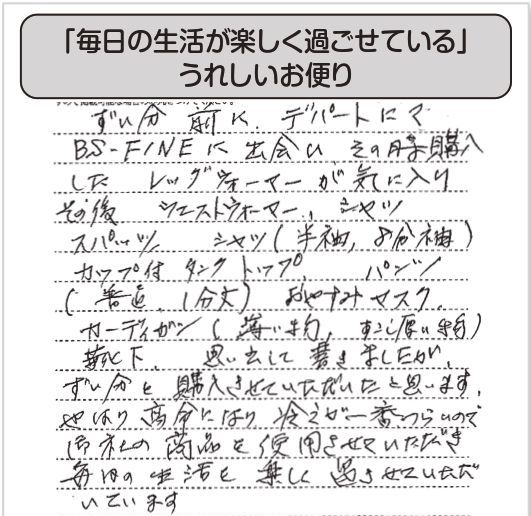 「毎日の生活が楽しく過ごせている」
うれしいお便り
ずい分 前に、デパートにて
BS-FINEに出会い その時購入
した レッグウォーマーが気に入り
その後 ウエストウォーマー、シャツ
スパッツ、シャツ(半袖、8分袖)
カップ付 タンクトップ、パンツ
(普通、1分丈) おやすみマスク、
カーディガン(薄い物、すこし厚い物)
靴下、思い出して書きましたが、
ずい分と購入させていただいたと思います。
やはり高令になり 冷えが一番つらいので
御社の商品を使用させていただき
毎日の生活を楽しく過させていただ
いています